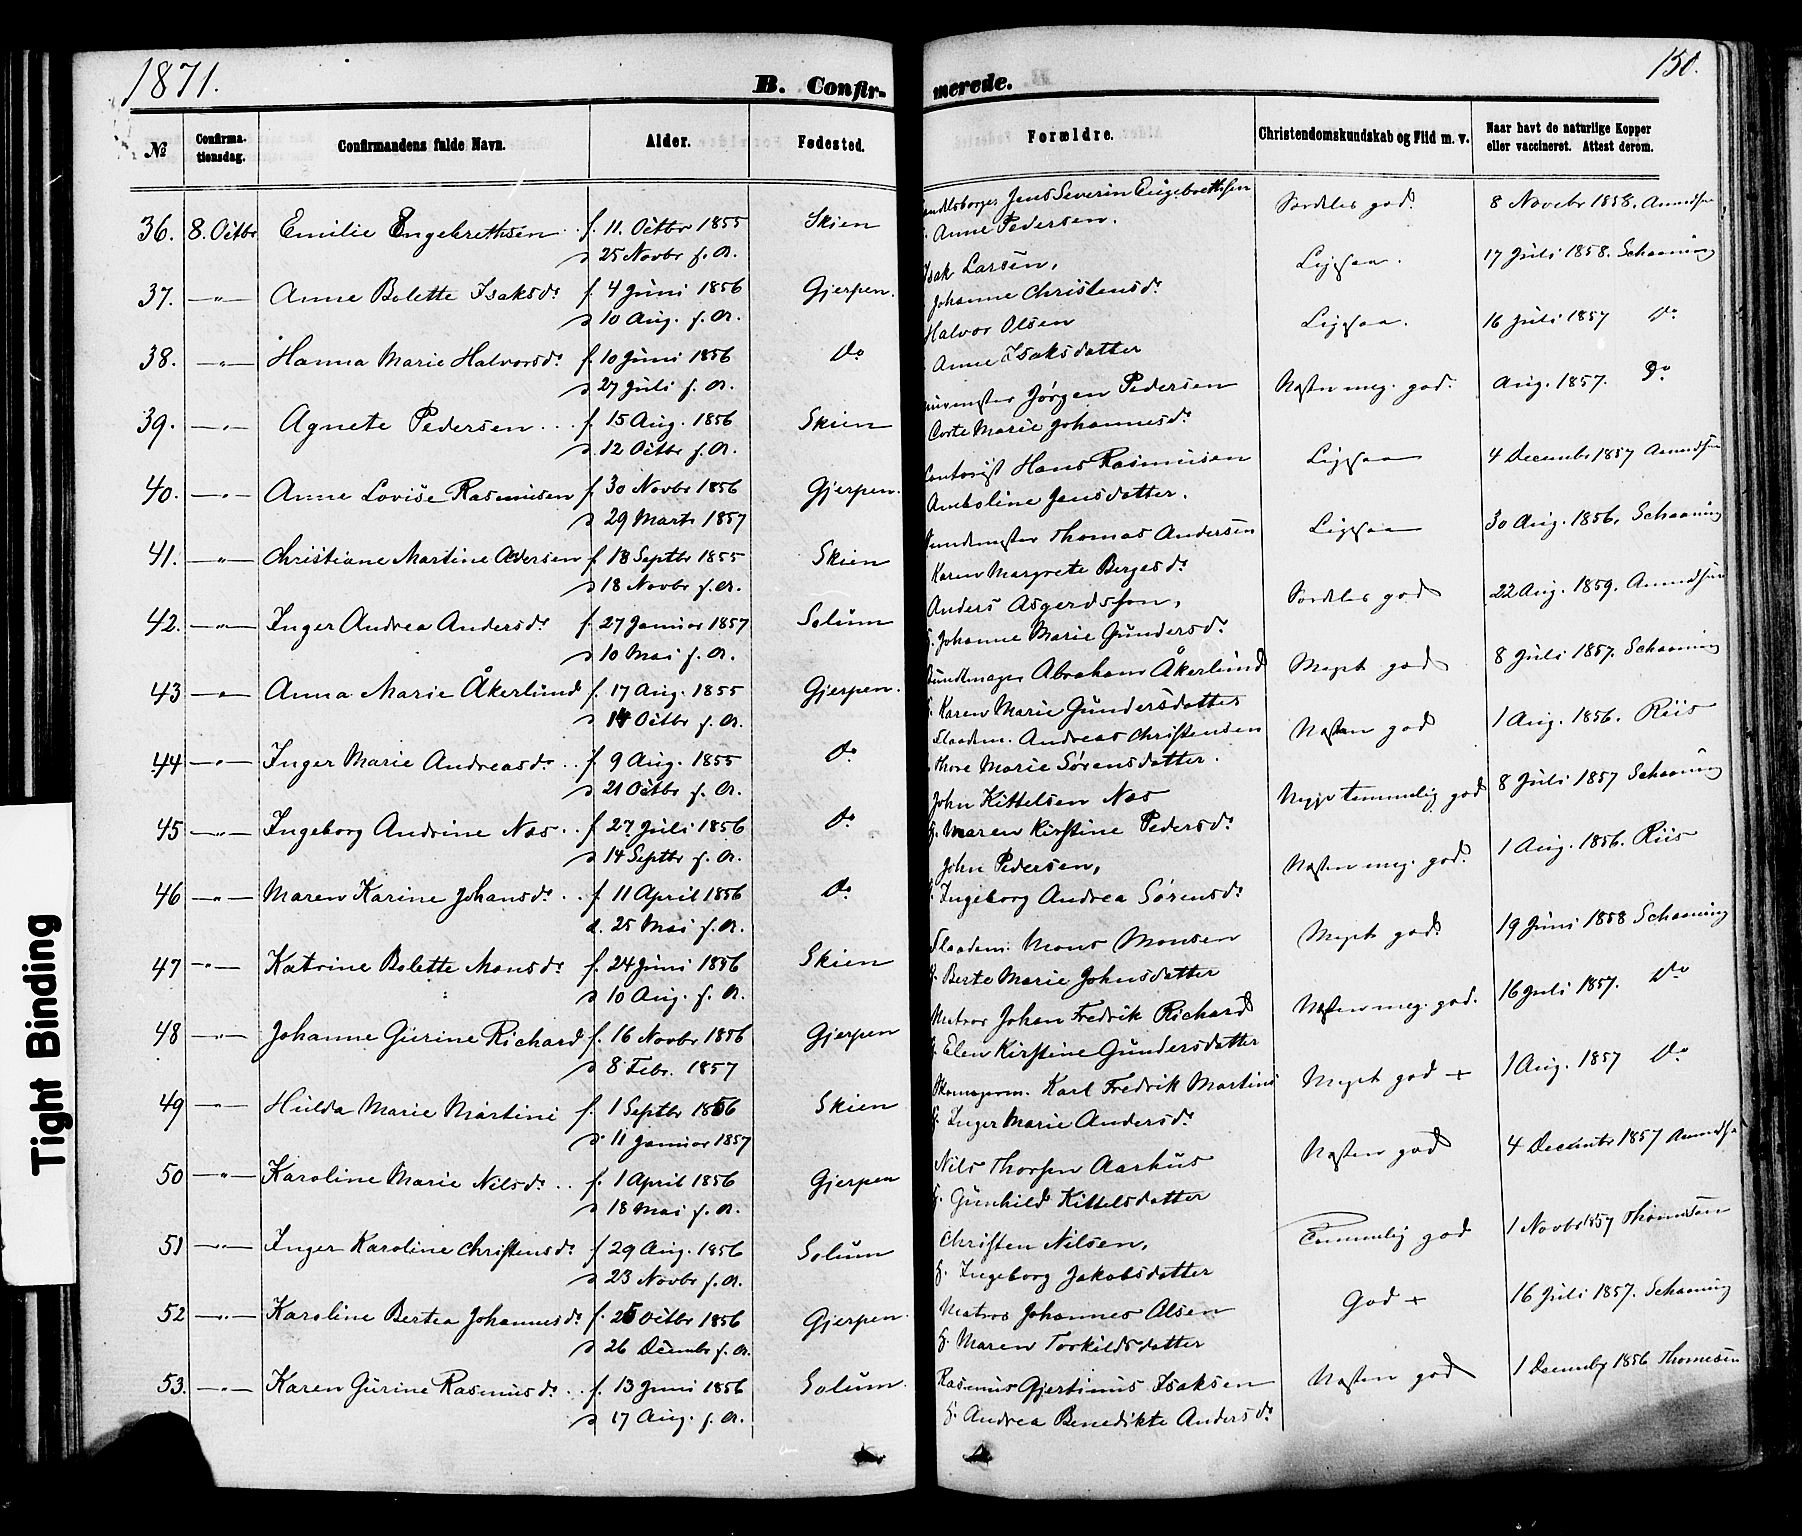 1871.
150.
B. Confir-
merede.
№
Confirma-
tionsdag.
Confirmandens fulde Navn.
Alder.
Fødested.
Forældre.
Christendomskundskab og Flid m. v.
Naar havt de naturlige Kopper
eller vaccineret. Attest derom.
36. 8. Octbr Emilie Engebrethsen f. 11. Octbr 1855 Skien Jens Severin Engebrethsen 8 Novebr 1858.
d 25 Novbr s. A. Anne Pedersen.
37. —"— Anne Bolette Isaksd. f. 4 Juni 1856 Gjerpen. Isak Larsen, Ligesaa. 17 Juli 1858. Schaaning
d 10 Aug. s. A. Johanne Christensd.
38. —"— Hanna Marie Halvorsd. f. 10 Juni 1856 Do Halvor Olsen Ligesaa. 16 Juli 1857 Do
d 27 Juli s. A. Anne Isaksdatter
39. —"— Agnete Pedersen f. 15 Aug. 1856 Skien Jørgen Pedersen Næsten meg. god. Aug. 1857. Do
d 12 Octbr s. A. Marie Johannesd.
40. —"— Anne Lovise Rasmusen f. 30 Novbr 1856 Gjerpen. Contorist Hans Rasmusen Ligesaa 4 Decembr 1857
d 29 Marts 1857 Jensdatter.
41. —"— Christiane Martine Andersen f. 18 Septbr 1855 Skien Thomas Andersen Ligesaa 30 Aug. 1856, Schaaning
d 18 Novbr s. A. Karen Margrete Bergesd.
42. —"— Inger Andrea Andersd. f. 27 Januar 1857 Solum Anders Asgerdssøn, god 22 Aug. 1859.
d 10 Mai s. A. Johanne Marie Gundersd.
43 —"— Anna Marie Åkerlund f. 17 Aug. 1855 Gjerpen. Abraham Åkerlund Meget god 8 Juli 1857. Schaaning
d 14 Octbr s. A. Karen Marie Gundersdatter
44 —"— Inger Marie Andreasd. f. 9 Aug. 1855 Do Andreas Christensen Næsten god 1 Aug. 1856. Riis
d 21 Octbr s. A. Marie Sørensdatter.
45 —"— Ingeborg Andrine Næs f. 27 Juli 1856 Do John Kittelsen Næs temmelig god 8 Juli 1857 Schaaning
d 14 Septbr s. A. Maren Kirstine Pedersd.
46 —"— Maren Karine Johansd. f. 11 April 1856 Do John Pedersen, Næsten meg. god. 1 Aug. 1856. Riis
d. 25 Mai s. A. Ingeborg Andrea Sørensd.
47 —"— Katrine Bolette Monsd. f. 24 Juni 1856 Skien Mons Monsen Meget god 19 Juni 1858 Schaaning
d 10 Aug. s. A. Berte Marie Johnsdatter
48 —"— Johanne Gurine Richard f. 16 Novbr 1856 Gjerpen Matros Johan Fredrik Richard Næsten meg. god. 16 Juli 1857. Do
d 8 Febr. 1857 Elen Kirstine Gundersdatter
49 —"— Hulda Marie Martini f. 1 Septbr 1856 Skien Karl Fredrik Martini Meget god + 1 Aug. 1857 Do
d 11 Januar 1857 Inger Marie Andersd.
50 —"— Karoline Marie Nilsd. f. 1 April 1856 Gjerpen Nils Thorsen Aarhus Næsten god 4 Decembr 1857
d 18 Mai s. A. Gunhild Kittelsdatter
51 —"— Inger Karoline Christensd. f 29 Aug. 1856 Solum Christen Nilsen, Temmelig god 1 Novbr 1857 Thomesen
d 23 Novbr s. A. Ingeborg Jakobsdatter
52 —"— Karoline Bertea Johannesd. f. 25 Octbr 1856 Gjerpen Matros Johannes Olsen God + 16 Juli 1857. Schaaning
d 26 Decembr s. A. Maren Torkildsdatter
53. —"— Karen Gurine Rasmusd. f. 13 Juni 1856 Solum. Rasmus Gjertinus Isaksen Næsten god 1 Decembr 1856 Thomesen
d 17 Aug. s. A. Andrea Benedikte Andersd.
Tight Binding